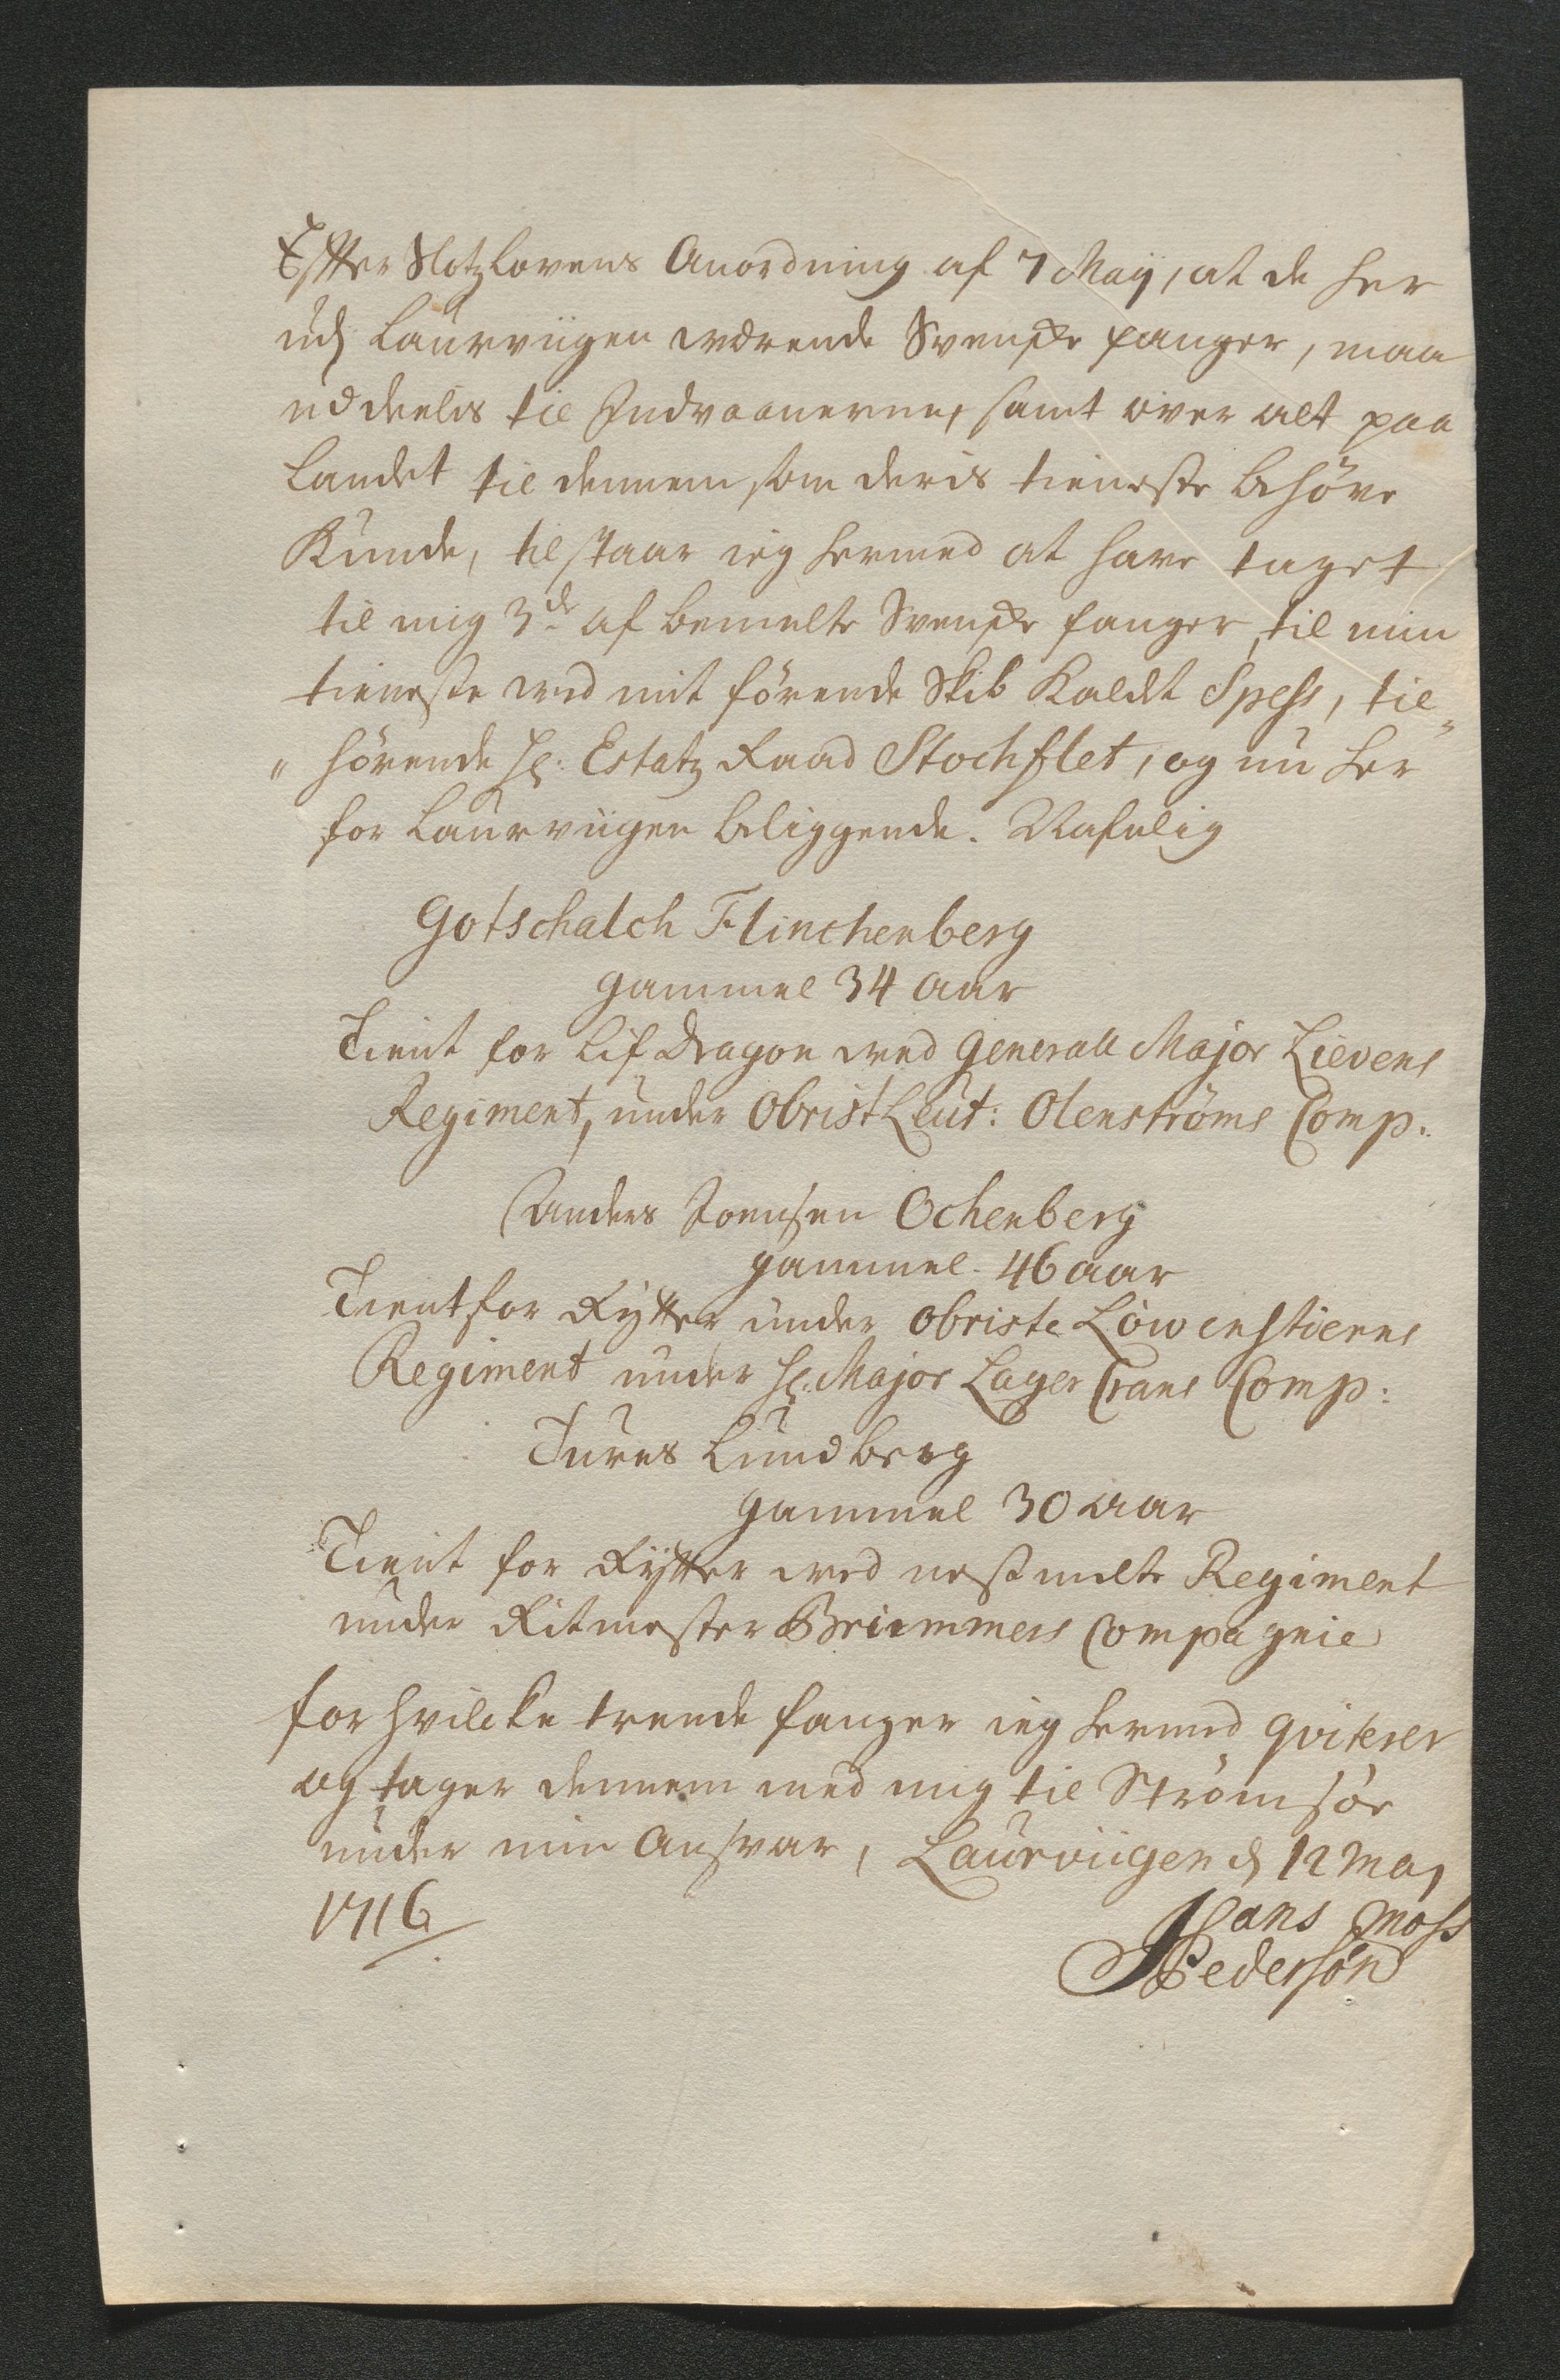 Efter Slotzlovens Anordning af 7 Maÿ, at de her
udj Laurviigen værende Svenske fanger, maa
uddeelis til Indvaanerne, samt over alt paa
Landet til dennem som deris tieneste behøve
Kunde, tilstaar ieg hermed at have taget
til mig 3de af bemelte Svenske fanger, til min
tieneste ved mit førende Skib Kaldt Spess, til„
„hørende Hr: Estatz Raad Stochflet, og nu her
for Laurviigen beliggende. Nafnlig
Gotschalch Flinchenberg
gammel 34 aar
Tient for Lif Dragon ved Generall Major Lievens
Regiment, under Obrist Leut: Olenströms Comp:
Anders Joensen Ochenberg
gammel 46 aar
Tient for Rÿtter under Obriste Löwenstierns
Regiment under Hr: Major Lager Crans Comp:
Tures Lundberg
gammel 30 aar
Tient for Rÿtter ved nestmelte Regiment
under Ritmester Briemmers Compagnie
for hvilcke trende fanger ieg hermed qviterer
og tager dennem med mig til Strömsöe
under min Ansvar, Laurviigen d 12 Maj
1716
Hans Moss
Pedersön